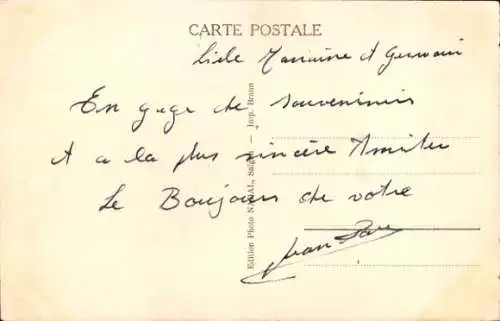 CARTE POSTALE
Marraine et Germain
En gage de souvenirs
et a la plus sincère Amitié
Le Boujour de votre
Jean
Edition Photo NADAL, Saigon — Imp. Braun